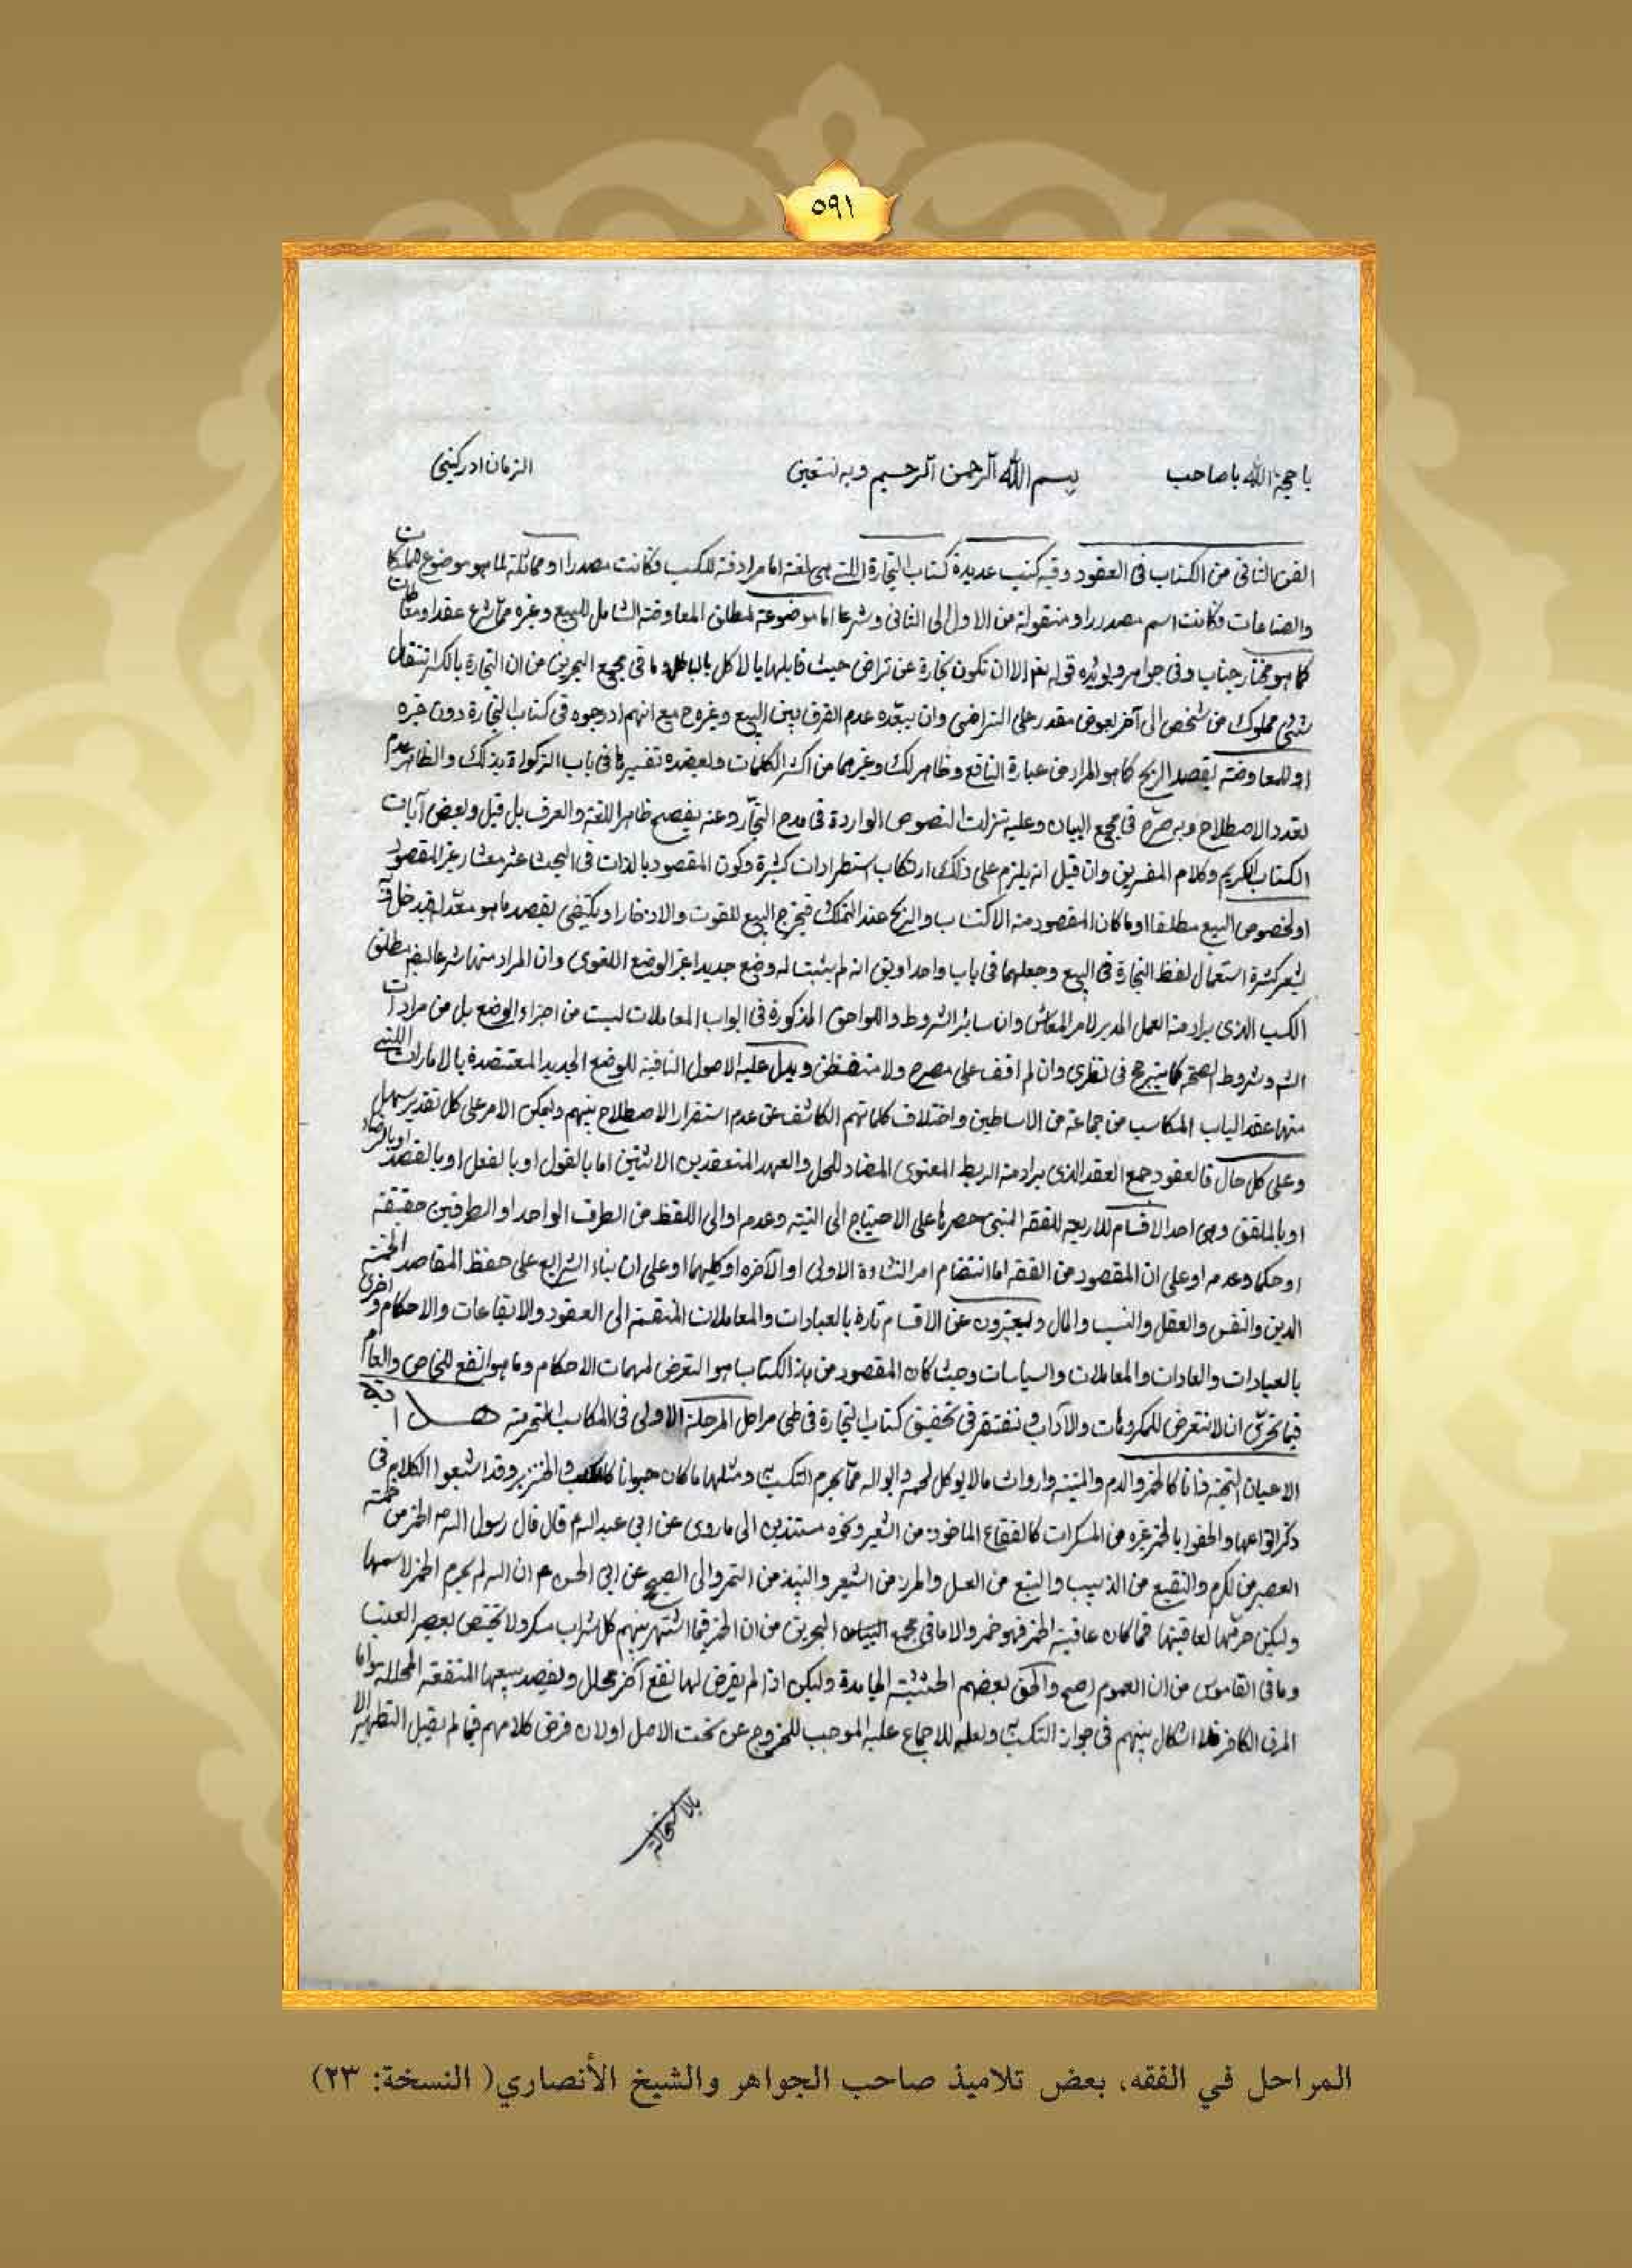 ٥٩١
يا حجة الله يا صاحب بسم الله الرحمن الرحيم وبه نستعين الزمان ادركني
الفن الثاني من الكتاب في العقود وفيه كتب عديدة كتاب التجارة اللتي هي لغة اما مرادفة للكسب فكانت مصدرا او مماثلة لما هو موضوع للملكات
والصناعات فكانت اسم مصدر او منقولة من الاول الى الثاني وشرعا اما موضوعة لمطلق المعاوضة الشامل للبيع وغيره مما شرع عقدا او معاطات
كما هو مختار جناب وفي جواهر ويؤيده قوله تعم الا ان تكون تجارة عن تراض حيث قابلها بالاكل بالباطل وما في مجمع البحرين من ان التجارة بالكسر انتقال
شيئ مملوك من شخص الى آخر بعوض مقدر على التراضي وان يبعده عدم الفرق بين البيع وغيره ح مع انهم ادرجوه في كتاب التجارة دون غيره
او للمعاوضة بقصد الربح كما هو المراد من عبارة النافع وظاهر لك وغيرهما من اكثر الكلمات ويعضده تفسيرها في باب الزكواة بذلك والظاهر عدم
تعدد الاصطلاح وبه صرح في مجمع البيان وعليه تنزلت النصوص الواردة في مدح التجار وعنه يفصح ظاهر اللغة والعرف بل قيل وبعض آيات
الكتاب الكريم وكلام المفسرين وان قيل انه يلزم على ذلك ارتكاب استطرادات كثيرة وكون المقصود بالذات في البحث عشر معشار غير المقصود
او لخصوص البيع مطلقا او ما كان المقصود منه الاكتساب والربح عند التملك فيخرج البيع للقوت والادخار او يكتفي بقصد ما هو معد له فيدخل فيه
يشعر كثرة استعمال لفظ التجارة في البيع وجعلهما في باب واحد او يق انه لم يثبت له وضع جديد غير الوضع اللغوي وان المراد منها شرعا ايضم مطلق
الكسب الذي يراد منه العمل المدبر لامر المعاش وان سائر الشروط واللواحق المذكورة في ابواب المعاملات ليست من اجزاء الوضع بل من مرادات
الشم وشروط الصحة كما يترجح في نظري وان لم اقف على مصرح ولا متفطن ويدل عليه الاصول النافية للوضع الجديد المعتضدة بالامارات اللتي
منها عقد الباب المكاسب من جماعة من الاساطين واختلاف كلماتهم الكاشف عن عدم استقرار الاصطلاح بينهم وليكن الامر على كل تقدير سهل
وعلى كل حال فالعقود جمع العقد الذي يراد منه الربط المعنوي المضاد للحل والعهد المنعقد بين الاثنين اما بالقول او بالفعل او بالقصد او بالرضاء
او بالملفق وهي احد الاقسام الاربعه للفقه المنبئ حصرها على الاحتياج الى النية وعدمه او الى اللفظ من الطرف الواحد او الطرفين حقيقة
او حكما وعدمه او على ان المقصود من الفقه اما انتظام امر النشاءة الاولى او الآخره او كليهما او على ان بناء الشرايع على حفظ المقاصد الخمسة
الدين والنفس والعقل والنسب والمال وليعبرون عن الاقسام تارة بالعبادات والمعاملات المنقسمة الى العقود والايقاعات والاحكام واخرى
بالعبادات والعادات والمعاملات والسياسات وحيث كان المقصود من هذا الكتاب هو التعرض لمهمات الاحكام وما هو انفع للخاص والعام
فبالحري ان لا نتعرض للمكروهات والآداب ونقتصر في تحقيق كتاب التجارة في طي مراحل المرحلة الاولى في المكاسب المحرمة
الاعيان النجسة ذاتا كالخمر والدم والميتة وارواث ما لا يؤكل لحمه وابواله مما يحرم التكسب بها ومثلها ما كان حيوانا كالكلب والخنزير وقد اشبعوا الكلام في
ذكر انواعها والحقوا بالخمر غيره من المسكرات كالفقاع الماخوذ من الشعير ونحوه مستندين الى ما روي عن ابي عبد الله م قال قال رسول الله ص الخمر من خمسة
العصير من الكرم والنقيع من الزبيب والبتع من العسل والمزر من الشعير والنبيذ من التمر والى الصحيح عن ابي الحسن م ان الله لم يحرم الخمر لاسمها
وليكن حرمها لعاقبتها فما كان عاقبته الخمر فهو خمر والى ما في مجمع البحرين من ان الخمر فيما اشتهر بينهم كل شراب مسكر ولا يختص بعصير العنب
وما في القاموس من ان العموم اصح والحق بعضهم الحشيشة الجامدة وليكن اذا لم يفرض لها نفع آخر محلل ويقصد ببيعها المنفعة المحللة واما
المرق الكافر فلا اشكال بينهم في جواز التكسب به ولعله للاجماع عليه الموجب للخروج عن تحت الاصل او لان فرض كلامهم فيما لم يقبل التطهير الا
بالاستحالة
المراحل في الفقه، بعض تلاميذ صاحب الجواهر والشيخ الأنصاري( النسخة: ٢٣)